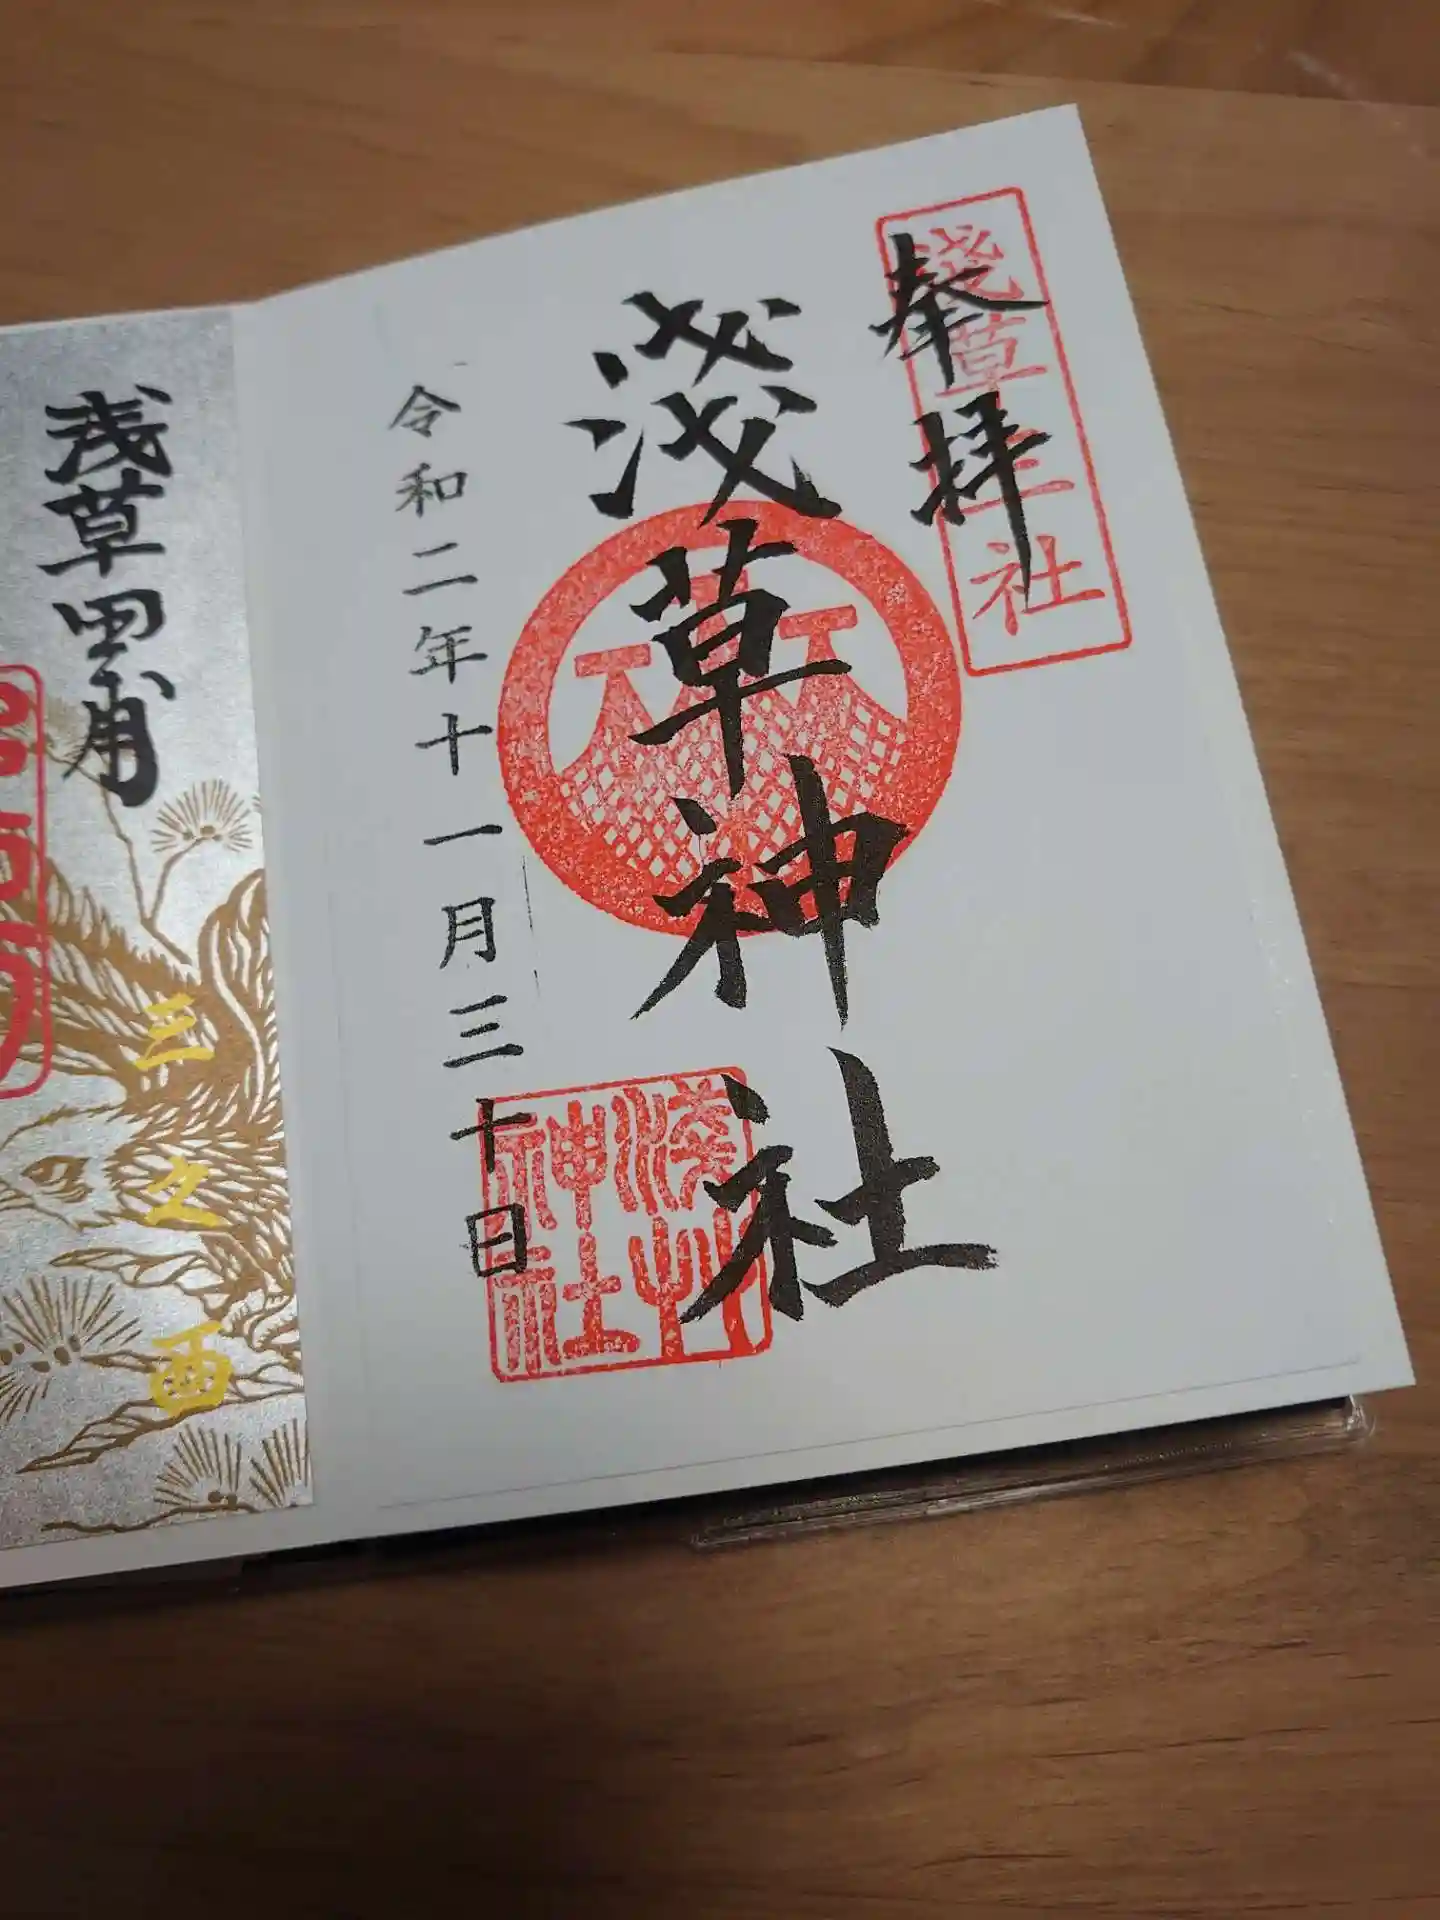 奉拝
淺草三社
淺草神社
淺艸神社
令和二年十一月三十日
浅草田甫
三之酉